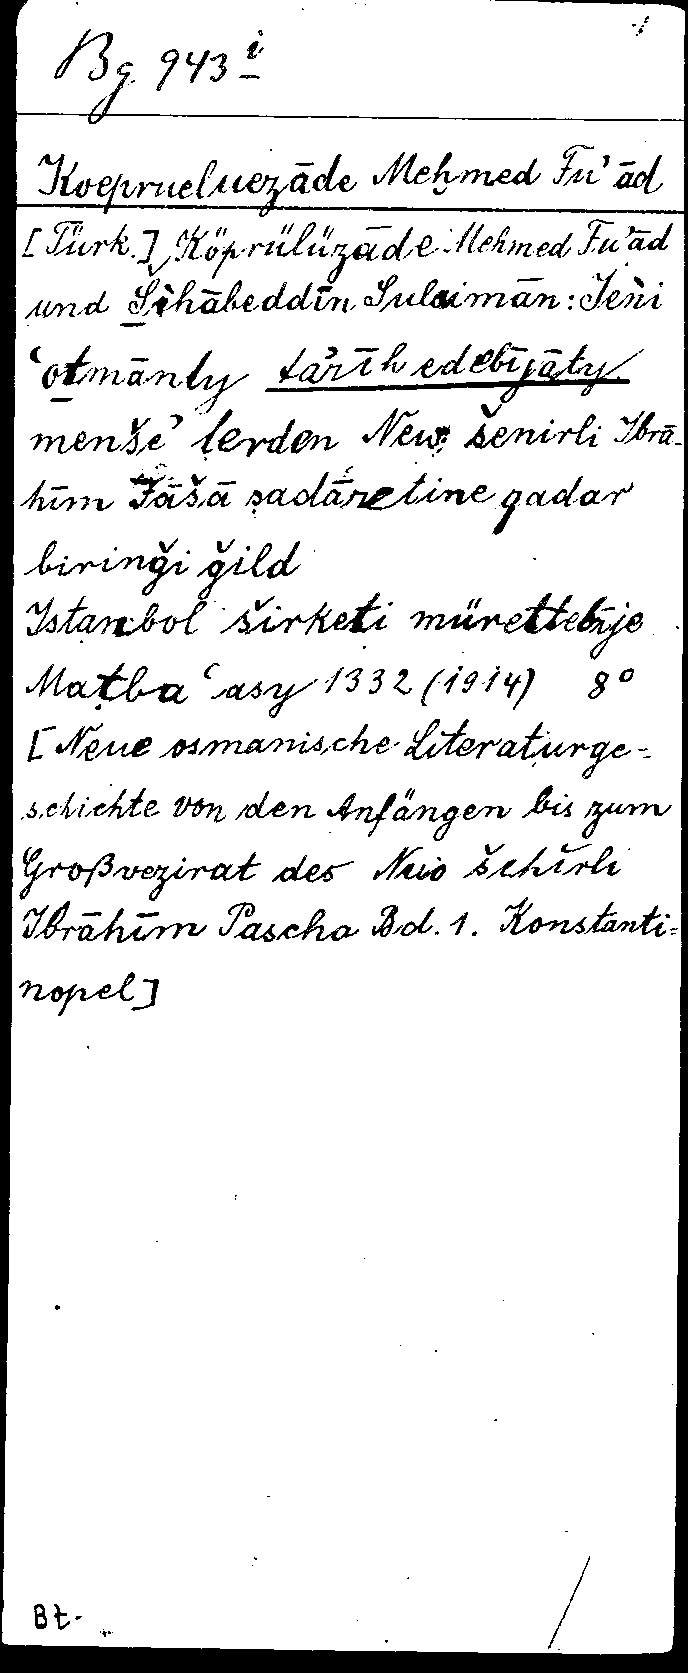 Bg. 943 i
Koeprueluezāde Meḥmed Fu'ād
[Türk.] Köprülüzāde Mehmed Fu'ād
und Šihābeddīn Sulaimān: Jeñi
ʿoṯmānly tā'rīh edebījāty
menše' lerden New šenirli Ibrā-
hīm Pāšā ṣadāretine qadar
birinǧi ǧild
Istanbol širketi mürettebīje
Maṭbaʿasy 1332 (1914) 8°
[Neue osmanische Literaturge-
schichte von den Anfängen bis zum
Großvezirat des šehīrli
Ibrāhīm Pascha Bd. 1. Konstanti-
nopel]
Bt.